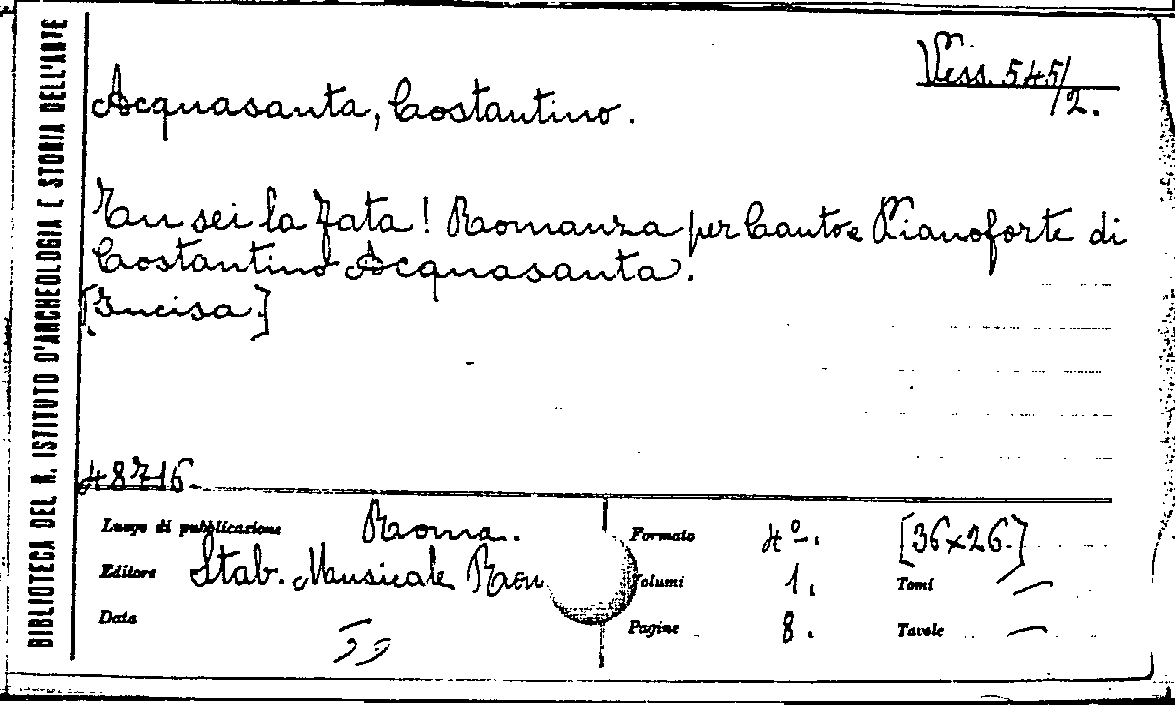 BIBLIOTECA DEL R. ISTITUTO D'ARCHEOLOGIA E STORIA DELL'ARTE
Vess. 545/2.
Acquasanta, Costantino.
Tu sei la fata! Romanza per Canto e Pianoforte di
Costantino Acquasanta.
[Incisa.]
48716
Luogo di pubblicazione Roma. Formato 4º. [36x26.]
Editore Stab. Musicale Volumi 1. Tomi —
Data " Pagine 8. Tavole —